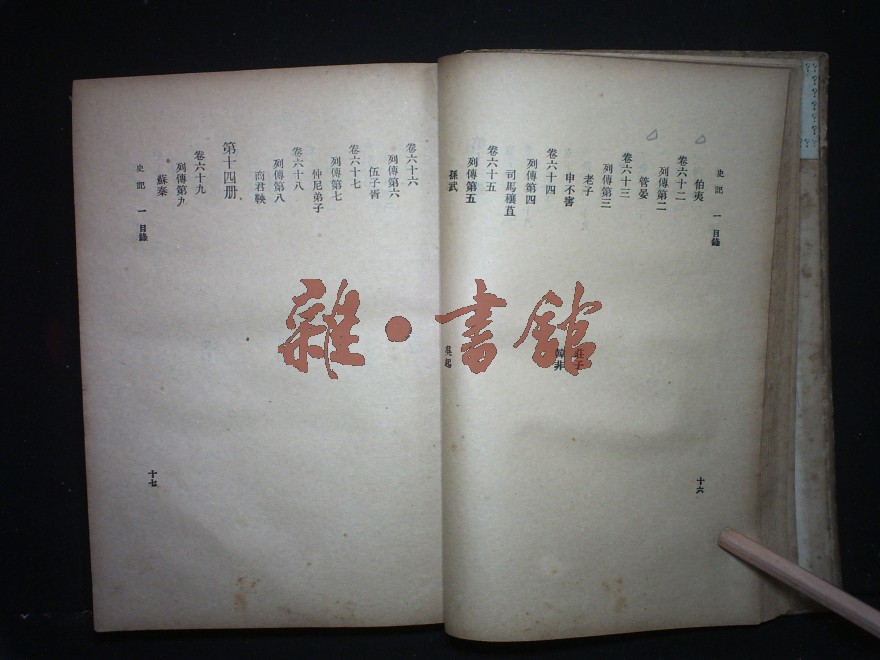 史記 一 目錄
伯夷
卷六十二
列傳第二
管晏
卷六十三
列傳第三
老子 莊子
申不害 韓非
卷六十四
列傳第四
司馬穰苴
卷六十五
列傳第五
孫武 吳起
十六
卷六十六
列傳第六
伍子胥
卷六十七
列傳第七
仲尼弟子
卷六十八
列傳第八
商君鞅
第十四册
卷六十九
列傳第九
蘇秦
史記 一 目錄
十七
雜·書館